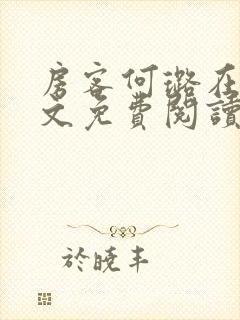 房客何璐在
文免費閱讀
於曉丰